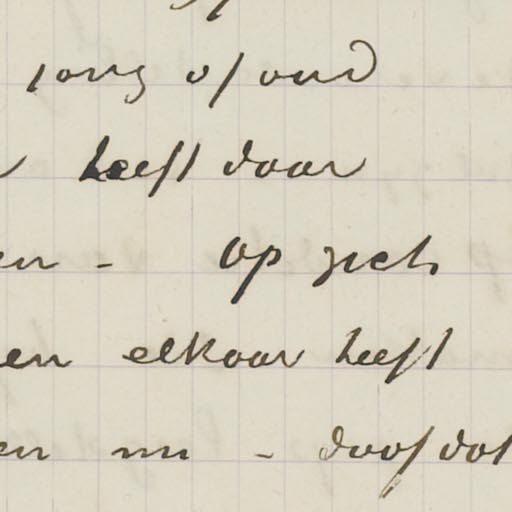 jong of oud
heeft daar
en - op zich
en elkaar heeft
en nu - doof dof